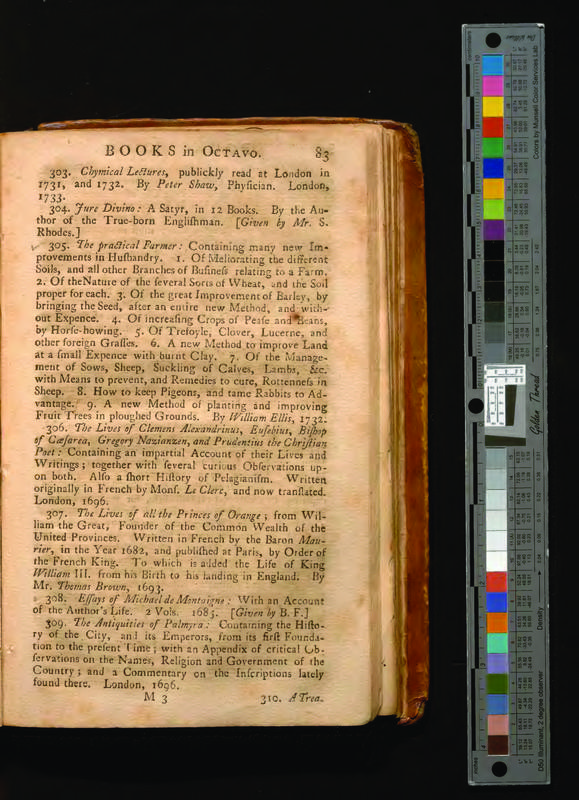 BOOKS in OCTAVO. 83
303. Chymical Lectures, publickly read at London in
1731, and 1732. By Peter Shaw, Phyſician. London,
1733.
304. Jure Divino: A Satyr, in 12 Books. By the Au-
thor of the True-born Engliſhman. [Given by Mr. S.
Rhodes.]
305. The practical Farmer: Containing many new Im-
provements in Huſbandry. 1. Of Meliorating the different
Soils, and all other Branches of Buſineſs relating to a Farm.
2. Of the Nature of the ſeveral Sorts of Wheat, and the Soil
proper for each. 3. Of the great Improvement of Barley, by
bringing the Seed, after an entire new Method, and with-
out Expence. 4. Of increaſing Crops of Peaſe and Beans,
by Horſe-howing. 5. Of Trefoyle, Clover, Lucerne, and
other foreign Graſſes. 6. A new Method to improve Land
at a ſmall Expence with burnt Clay. 7. Of the Manage-
ment of Sows, Sheep, Suckling of Calves, Lambs, &c.
with Means to prevent, and Remedies to cure, Rottenneſs in
Sheep. 8. How to keep Pigeons, and tame Rabbits to Ad-
vantage. 9. A new Method of planting and improving
Fruit Trees in ploughed Grounds. By William Ellis, 1732.
306. The Lives of Clemens Alexandrinus, Euſebius, Biſhop
of Cæſarea, Gregory Nazianzen, and Prudentius the Chriſtian
Poet: Containing an impartial Account of their Lives and
Writings; together with ſeveral curious Obſervations up-
on both. Alſo a ſhort Hiſtory of Pelagianiſm. Written
originally in French by Monſ. Le Clerc, and now tranſlated.
London, 1696.
307. The Lives of all the Princes of Orange; from Wil-
liam the Great, Founder of the Common Wealth of the
United Provinces. Written in French by the Baron Mau-
rier, in the Year 1682, and publiſhed at Paris, by Order of
the French King. To which is added the Life of King
William III. from his Birth to his landing in England. By
Mr. Thomas Brown, 1693.
308. Eſſays of Michael de Montaigne: With an Account
of the Author's Life. 2 Vols. 1685. [Given by B. F.]
309. The Antiquities of Palmyra: Containing the Hiſto-
ry of the City, and its Emperors, from its firſt Founda-
tion to the preſent Time; with an Appendix of critical Ob-
ſervations on the Names, Religion and Government of the
Country; and a Commentary on the Inſcriptions lately
found there. London, 1696.
M 3 310. A Trea-
Colors by Munsell Color Services Lab
Golden Thread
Density
D50 Illuminant, 2 degree observer
centimeters
inches